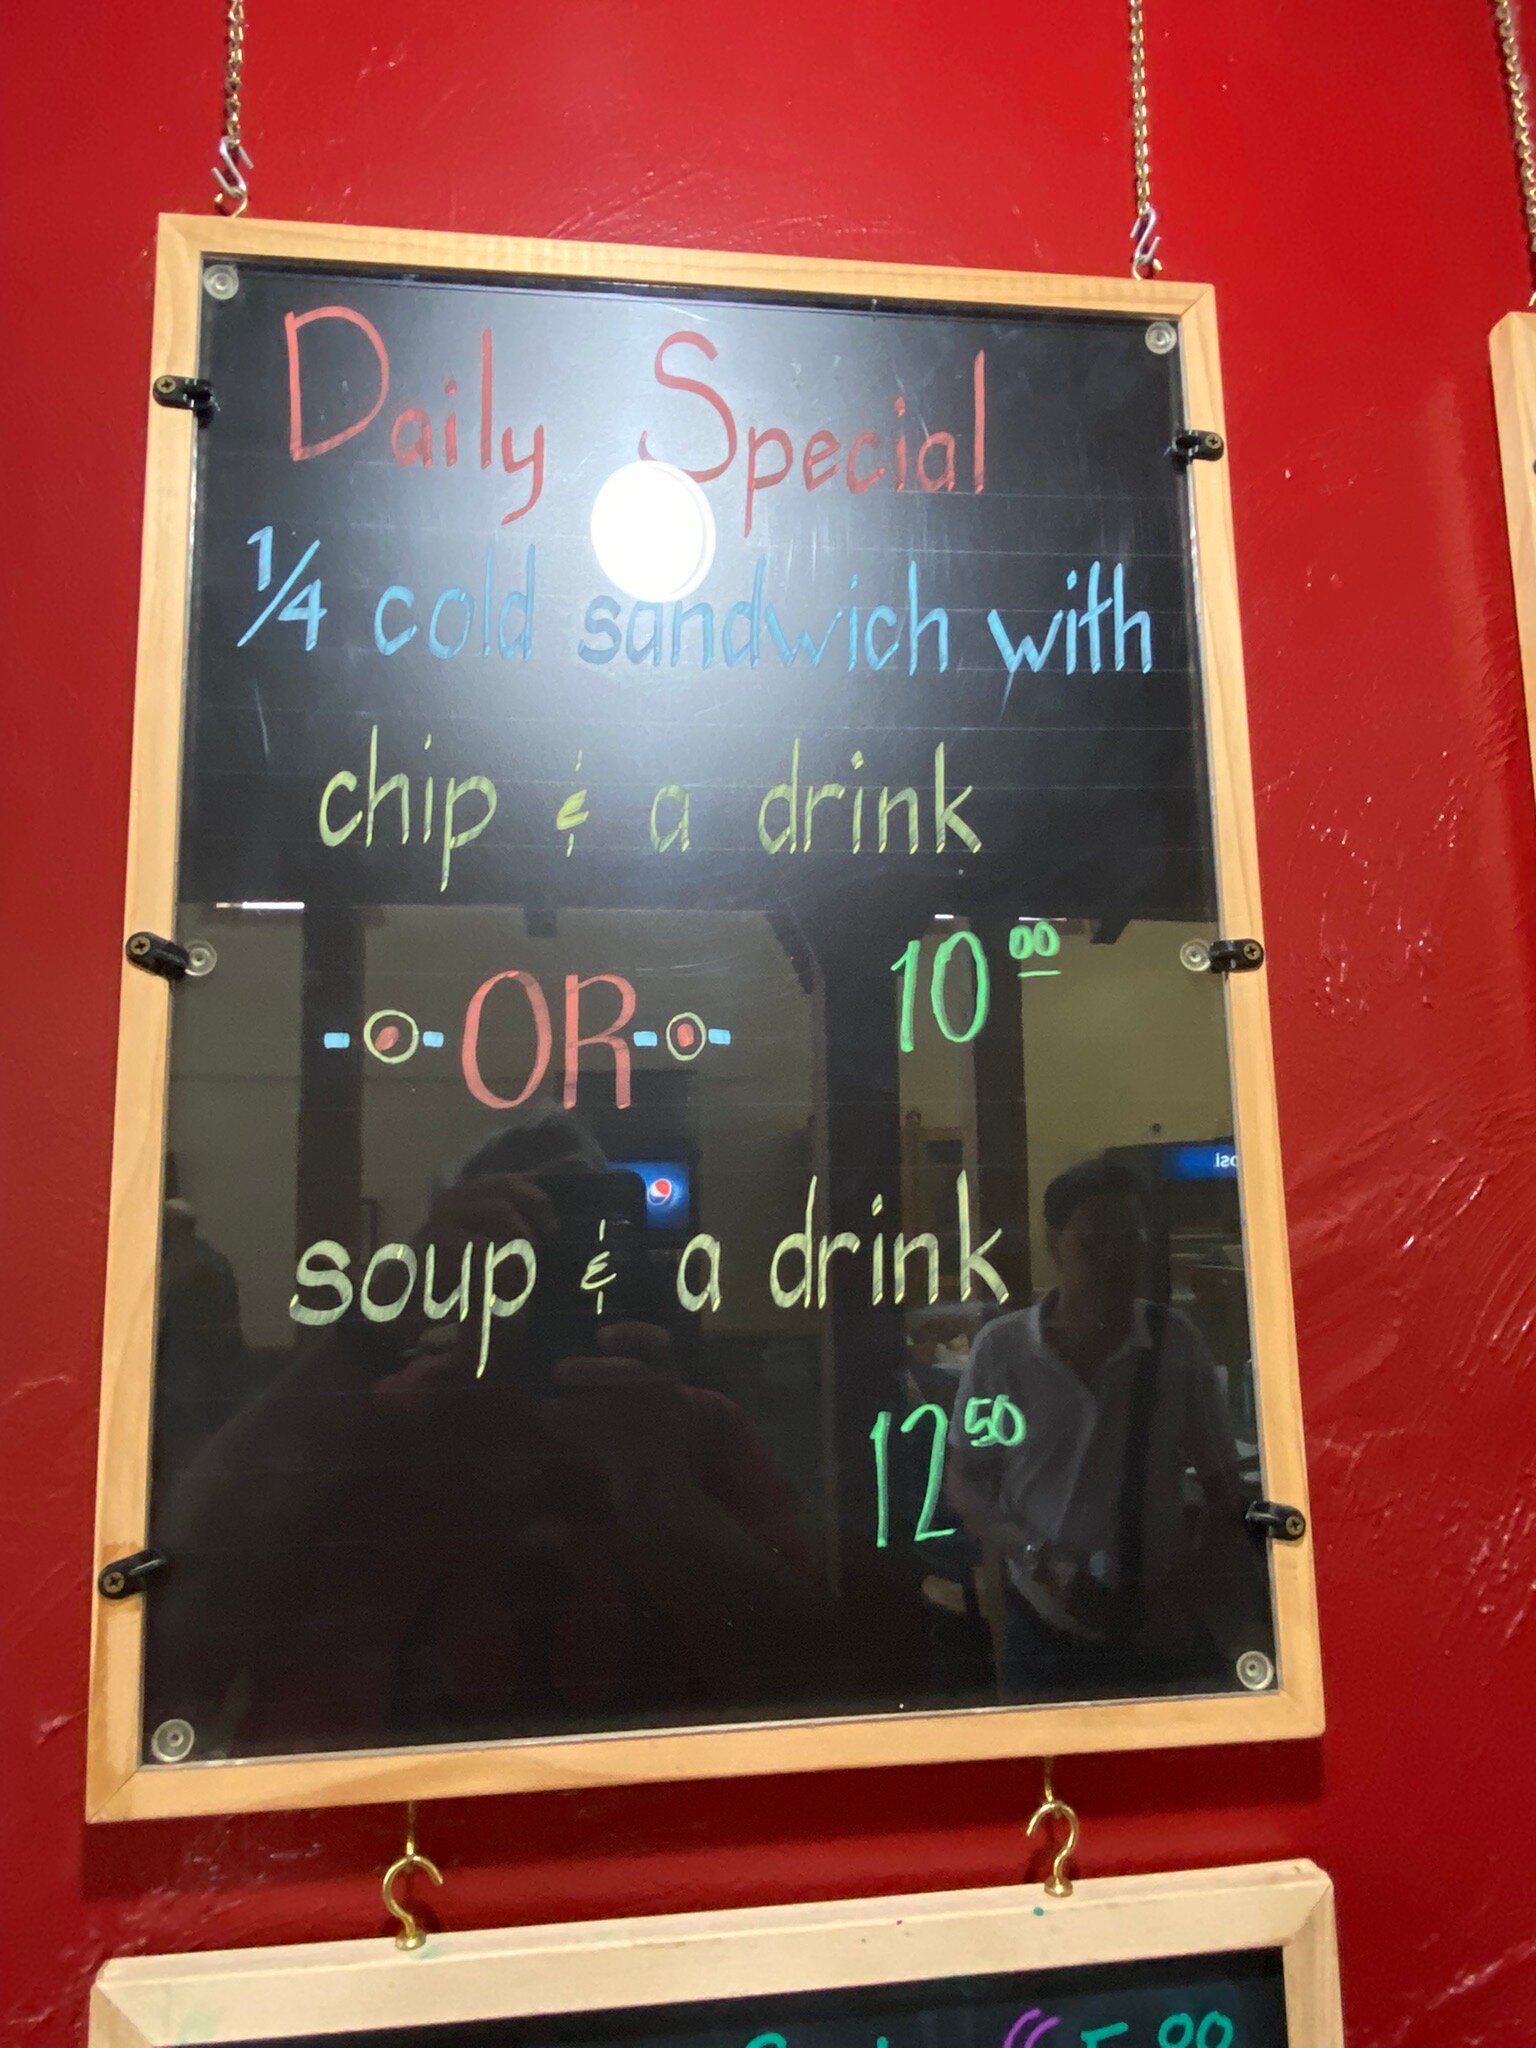 Daily Special
1/4 cold sandwich with
chip & a drink
10 00
OR
soup & a drink
12 50